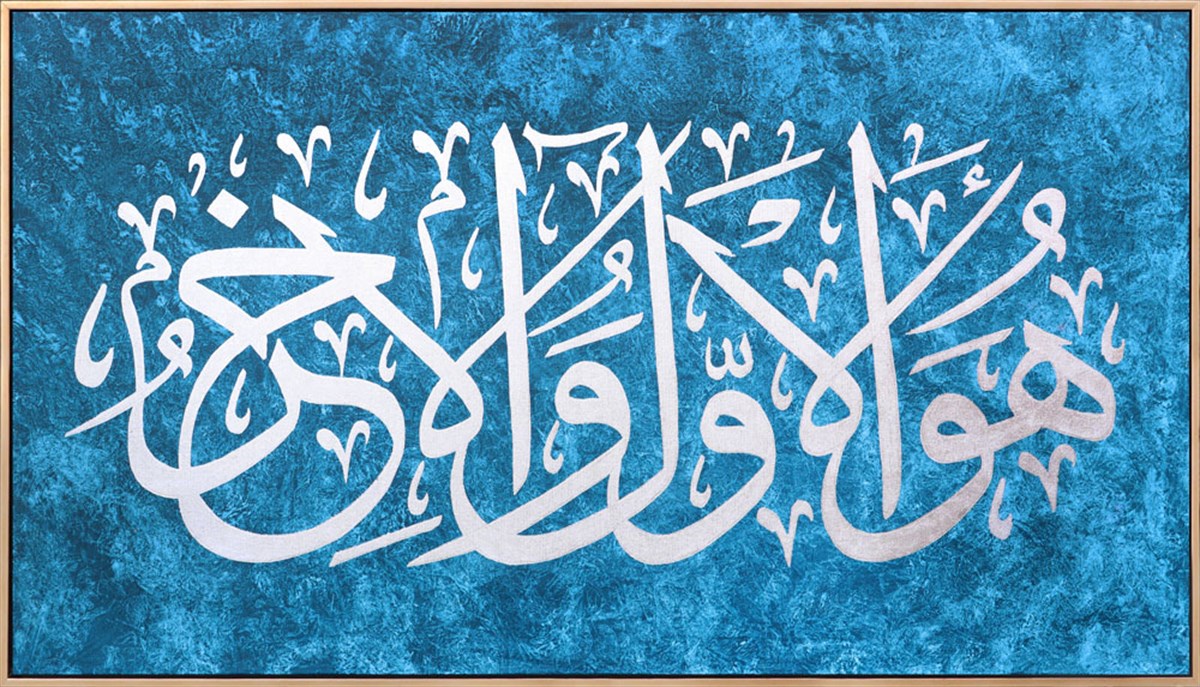 هُوَ الْأَوَّلُ وَالْآخِرُ